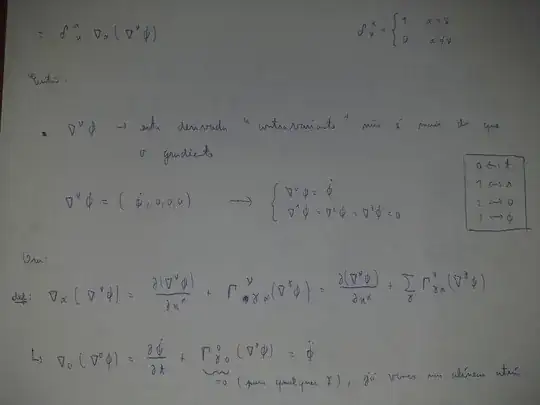 = δ^α_ν ∇_α ( ∇^ν ϕ )
δ^α_ν = { 1 α=ν
0 α≠ν
Então:
• ∇^ν ϕ → esta derivada "contravariante" não é mais do que
o gradiente
∇^ν ϕ = ( ϕ̇, 0, 0, 0 ) → { ∇^0 ϕ = ϕ̇
∇^1 ϕ = ∇^2 ϕ = ∇^3 ϕ = 0
0 ↔ t
1 ↔
2 ↔ θ
3 ↔ ϕ
def: ∇_α ( ∇^ν ϕ ) = ∂(∇^ν ϕ)/∂x^α + Γ^ν_γα (∇^γ ϕ) = ∂(∇^ν ϕ)/∂x^α + Σ_γ Γ^ν_γα (∇^γ ϕ)
↳ ∇_0 ( ∇^0 ϕ ) = ∂ϕ̇/∂t + Γ^0_γ0 (∇^γ ϕ) = ϕ̈
=0 (para qualquer γ), já vimos na alínea